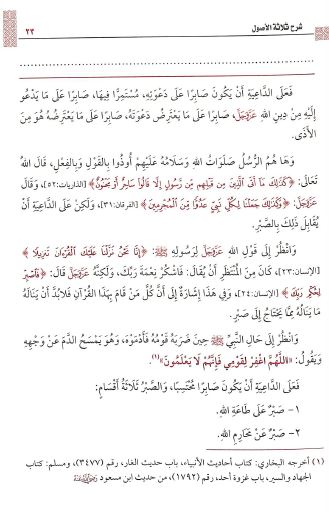 شرح ثلاثة الأصول
٢٣
فَعَلَى الدَّاعِيَةِ أَنْ يَكُونَ صَابِرًا عَلَى دَعْوَتِهِ، مُسْتَمِرًّا فِيهَا، صَابِرًا عَلَى مَا يَدْعُو
إِلَيْهِ مِنْ دِينِ اللهِ عَزَّوَجَلَّ، صَابِرًا عَلَى مَا يَعْتَرِضُ دَعْوَتَهُ، صَابِرًا عَلَى مَا يَعْتَرِضُهُ هُوَ مِنَ
الأَذَى.
وَهَا هُمُ الرُّسُلُ صَلَوَاتُ اللهِ وَسَلَامُهُ عَلَيْهِمْ أُوذُوا بِالقَوْلِ وَبِالفِعْلِ، قَالَ اللهُ
تَعَالَى: ﴿كَذَلِكَ مَا أَتَى الَّذِينَ مِن قَبْلِهِم مِّن رَّسُولٍ إِلَّا قَالُوا سَاحِرٌ أَوْ مَجْنُونٌ﴾ [الذاريات:٥٢]، وَقَالَ
عَزَّوَجَلَّ: ﴿وَكَذَلِكَ جَعَلْنَا لِكُلِّ نَبِيٍّ عَدُوًّا مِّنَ الْمُجْرِمِينَ﴾ [الفرقان:٣١]، وَلَكِنْ عَلَى الدَّاعِيَةِ أَنْ
يُقَابِلَ ذَلِكَ بِالصَّبْرِ.
وَانْظُرْ إِلَى قَوْلِ اللهِ عَزَّوَجَلَّ لِرَسُولِهِ ﷺ: ﴿إِنَّا نَحْنُ نَزَّلْنَا عَلَيْكَ الْقُرْآنَ تَنزِيلًا﴾
[الإنسان:٢٣]، كَانَ مِنَ المُنْتَظَرِ أَنْ يُقَالَ: فَاشْكُرْ نِعْمَةَ رَبِّكَ، وَلَكِنَّهُ عَزَّوَجَلَّ قَالَ: ﴿فَاصْبِرْ
لِحُكْمِ رَبِّكَ﴾ [الإنسان:٢٤]، وَفِي هَذَا إِشَارَةٌ إِلَى أَنَّ كُلَّ مَنْ قَامَ بِهَذَا القُرْآنِ فَلَابُدَّ أَنْ يَنَالَهُ
مَا يَنَالُهُ مِمَّا يَحْتَاجُ إِلَى صَبْرٍ.
وَانْظُرْ إِلَى حَالِ النَّبِيِّ ﷺ حِينَ ضَرَبَهُ قَوْمُهُ فَأَدْمَوْهُ، وَهُوَ يَمْسَحُ الدَّمَ عَنْ وَجْهِهِ
وَيَقُولُ: «اللَّهُمَّ اغْفِرْ لِقَوْمِي فَإِنَّهُمْ لَا يَعْلَمُونَ»(١).
فَعَلَى الدَّاعِيَةِ أَنْ يَكُونَ صَابِرًا مُحْتَسِبًا، وَالصَّبْرُ ثَلَاثَةُ أَقْسَامٍ:
١- صَبْرٌ عَلَى طَاعَةِ اللهِ.
٢- صَبْرٌ عَنْ مَحَارِمِ اللهِ.
(١) أخرجه البخاري: كتاب أحاديث الأنبياء، باب حديث الغار، رقم (٣٤٧٧)، ومسلم: كتاب
الجهاد والسير، باب غزوة أحد، رقم (١٧٩٢)، من حديث ابن مسعود رَضِيَ اللهُ عَنْهُ.